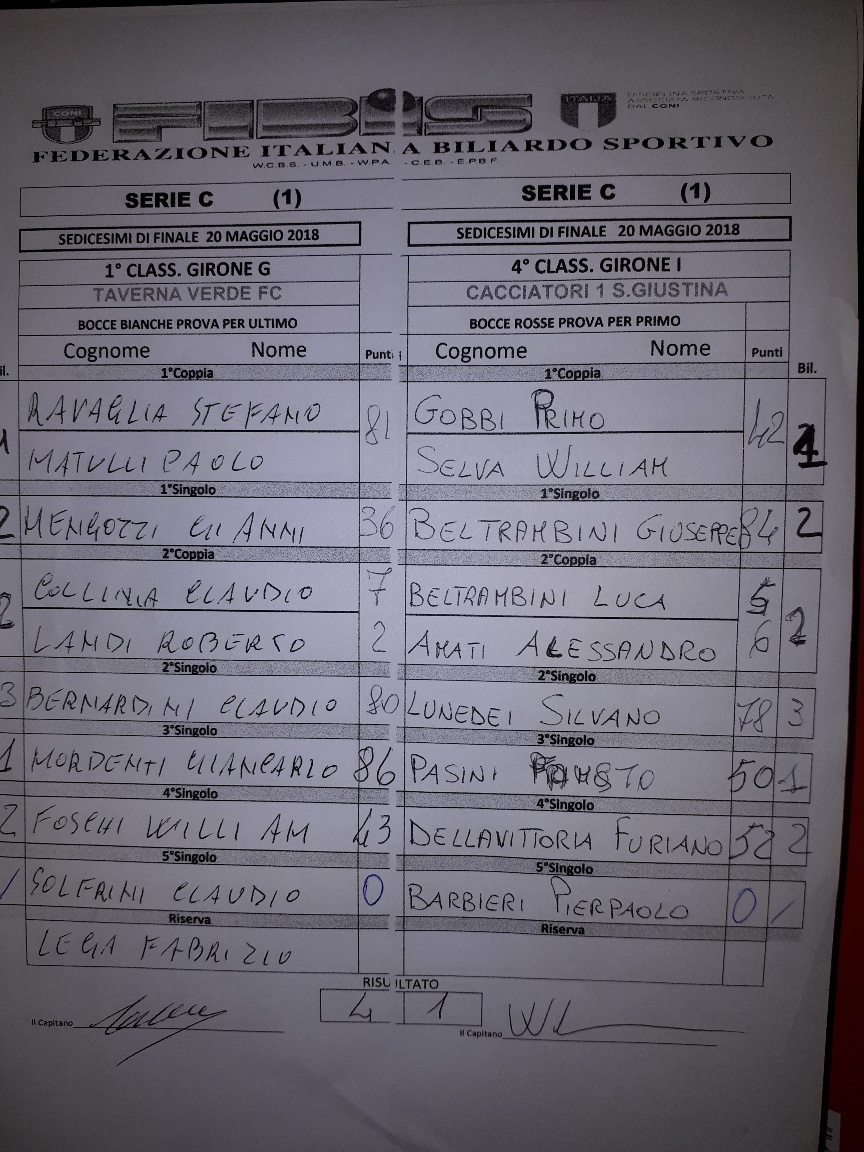 CONI FIBiS ITALIA
DAI CONI
FEDERAZIONE ITALIANA BILIARDO SPORTIVO
W.C.B.S. - U.M.B. - W.P.A. - C.E.B. - E.P.B.F.
SERIE C (1) SERIE C (1)
SEDICESIMI DI FINALE 20 MAGGIO 2018 SEDICESIMI DI FINALE 20 MAGGIO 2018
1° CLASS. GIRONE G 4° CLASS. GIRONE I
TAVERNA VERDE FC CACCIATORI 1 S.GIUSTINA
BOCCE BIANCHE PROVA PER ULTIMO BOCCE ROSSE PROVA PER PRIMO
Cognome Nome Punti Cognome Nome Punti
il. 1°Coppia 1°Coppia Bil.
RAVAGLIA STEFANO 81 GOBBI PRIMO 42
1 MATULLI PAOLO SELVA WILLIAM 1
1°Singolo 1°Singolo
2 MENGOZZI GIANNI 36 BELTRAMBINI GIUSEPPE 84 2
2°Coppia 2°Coppia
COLLINA CLAUDIO 7 BELTRAMBINI LUCA 5
2 LANDI ROBERTO 2 AMATI ALESSANDRO 6 2
2°Singolo 2°Singolo
3 BERNARDINI CLAUDIO 80 LUNEDEI SILVANO 78 3
3°Singolo 3°Singolo
1 MORDENTI GIANCARLO 86 PASINI 50 1
4°Singolo 4°Singolo
2 FOSCHI WILLIAM 43 DELLAVITTORIA FURIANO 52 2
5°Singolo 5°Singolo
/ SOLFRINI CLAUDIO 0 BARBIERI PIERPAOLO 0 /
Riserva Riserva
LEGA FABRIZIO
RISULTATO
4 1
Il Capitano Il Capitano